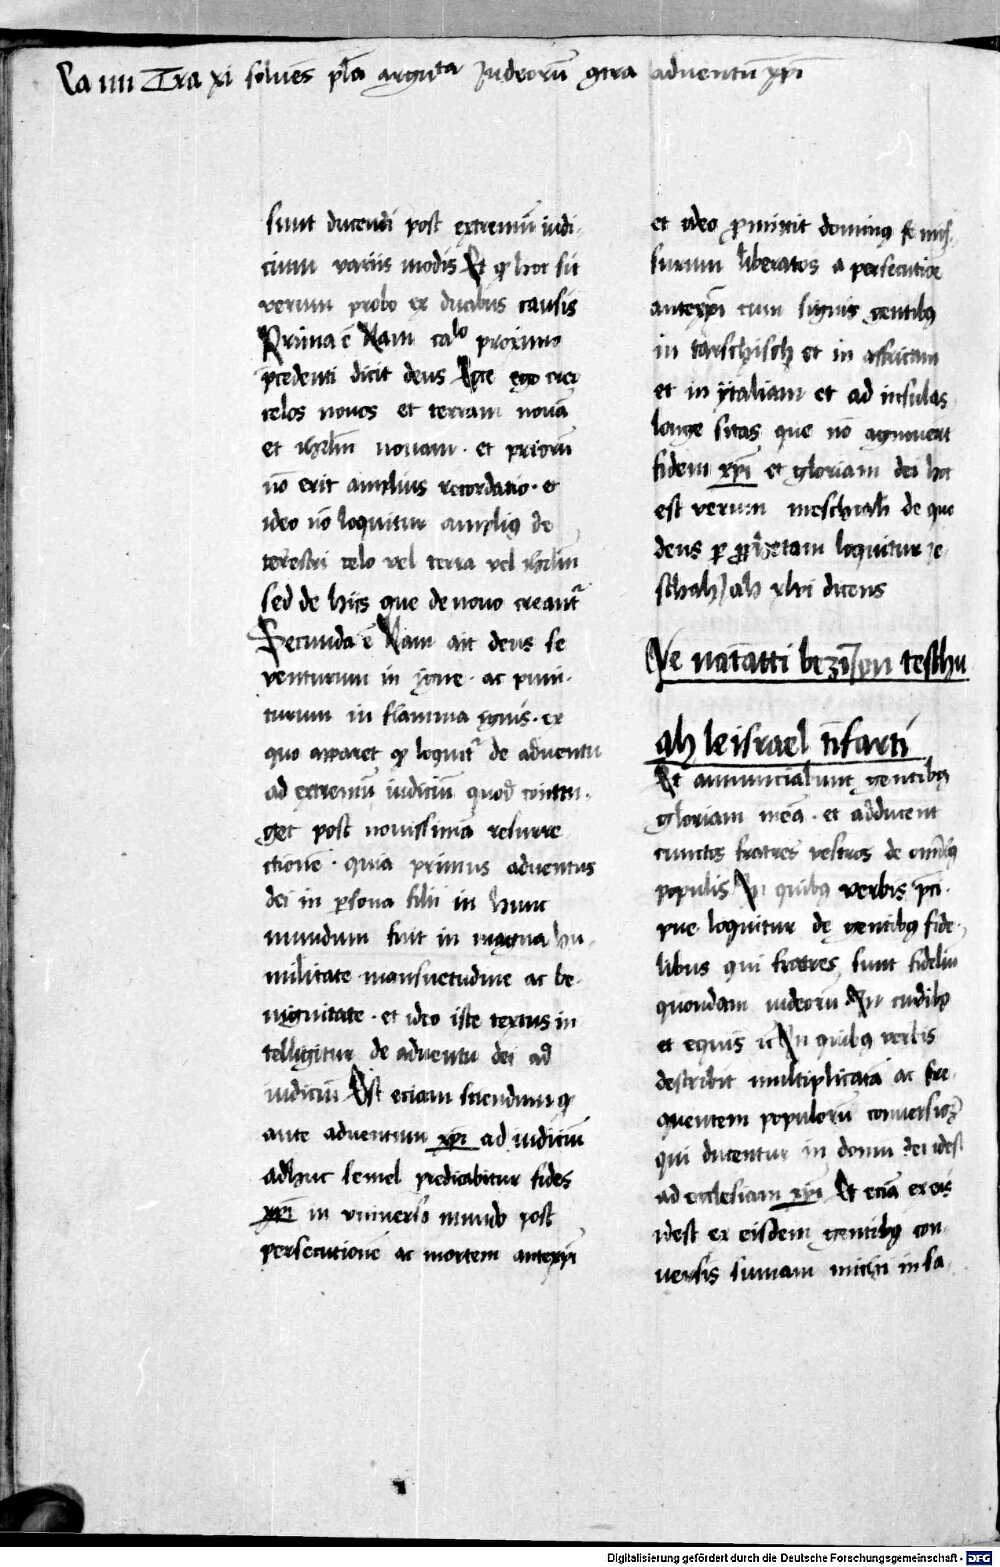 Ca iiii Tra xi soluēs pl̄a argūta Judeorū ꝯtra aduentū xp̄i
sunt ducendi post extremū iudi-
cium variis modis Et ꝙ hoc sit
verum probo ex duabus causis
Prima ē Nam caᵖˡᵒ proximo
p̄cedenti dicit deus Ecce ego creo
celos nouos et terram nouā
et ihrlm̄ nouam · et priorū
nō erit amplius recordatio · et
ideo nō loquitur ampliꝰ de
terrestri celo vel terra vel ihrlm̄
sed de hiis que de nouo creant᷑
Secunda ē Nam ait deus se
venturum in igne · ac puni-
turum in flamma ignis · ex
quo apparet ꝙ loquit᷑ de aduentu
ad extremū iudiciū quod contin-
get post nouissimā resurre
ctionē · quia primus aduentus
dei in ꝑsona filii in hunc
mundum fuit in magna hu-
militate mansuetudine ac be-
nignitate · et ideo iste textus in
telligitur de aduentu dei ad
iudiciū Est eciam sciendum ꝙ
ante aduentum xp̄i ad iudiciū
adhuc semel predicabitur fides
xp̄i in vniuerso mundo post
persecutionē ac mortem antexp̄i
et ideo ꝓmittit dominꝰ se mis-
surum liberatos a persecutiōe
antexp̄i cum signis gentibꝰ
in tarschisch et in affricam
et in ytaliam et ad insulas
longe sitas que nō agnouerūt
fidem xp̄i et gloriam dei hoc
est verum meschiah de quo
deus ꝑ ꝓphetam loquitur Je-
schahJah xlvi dicens
Ve natatti beziJon teschu
ah le israel tifarti
Et annunciabunt gentibꝰ
gloriam meā · et adducent
cunctos fratres vestros de omībꝰ
populis In quibꝰ verbis
loquitur de gentibꝰ fide-
libus qui fratres sunt fideliū
quondam iudeorū In curribꝰ
et equis ꝛc In quibꝰ verbis
describit multiplicatā ac fre-
quentem populorū conuersiōē
qui ducentur in domū dei idest
ad ecclesiam xp̄i Et eciā ex eis
idest ex eisdem gentibꝰ con-
uersis sumam michi in sa-
Digitalisierung gefördert durch die Deutsche Forschungsgemeinschaft - DFG